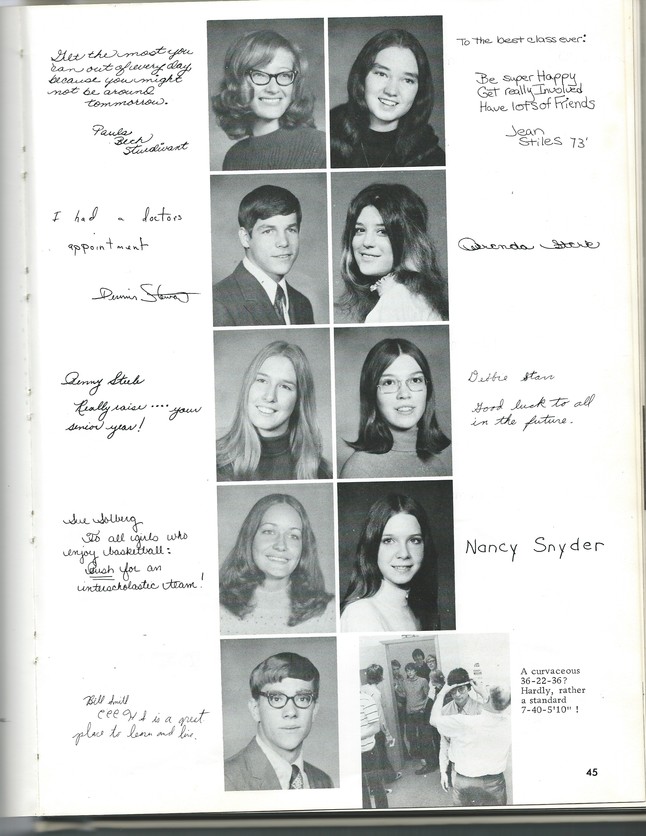 Get the most you
can out of every day,
because you might
not be around
tommorrow.
Paula
Beck
Sturdivant
To the best class ever:
Be super Happy
Get really Involved
Have lots of Friends
Jean
Stiles 73'
I had a doctors
appointment
Dennis
Brenda
Penny Steele
Really raise .... your
senior year!
Debbie Starr
Good luck to all
in the future.
Sue Solberg
To all girls who
enjoy basketball:
Push for an
interscholastic team!
Nancy Snyder
Bill Smith
is a great
place to learn and live.
A curvaceous
36-22-36?
Hardly, rather
a standard
7-40-5'10" !
45